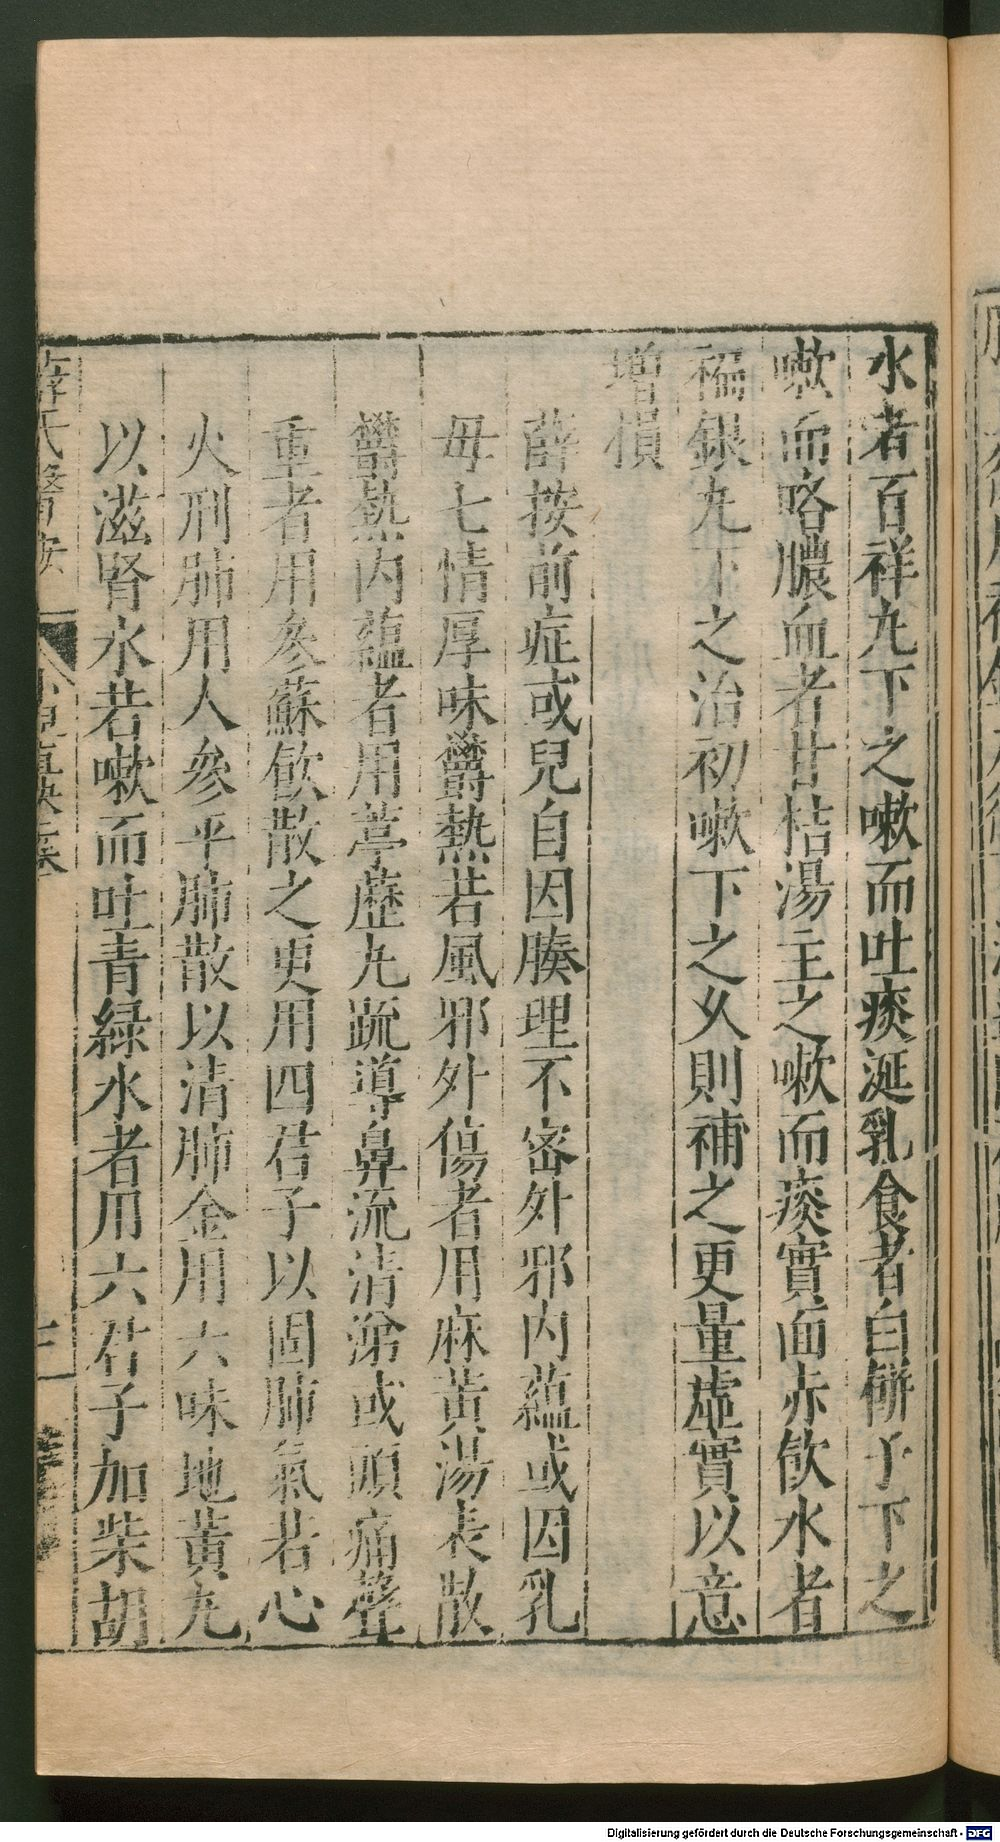 水者百祥丸下之嗽而吐痰涎乳食者白餅子下之
嗽而咯膿血者甘桔湯主之嗽而痰實面赤飲水者
褊銀丸下之治初嗽下之久則補之更量虛實以意
増損
薛按前症或兒自因腠理不密外邪内蘊或因乳
母七情厚味欝熱若風邪外傷者用麻黄湯表散
欝熱内蘊者用葶藶丸疏導鼻流清涕或頭痛聲
重者用參蘇飲散之更用四君子以固肺氣若心
火刑肺用人參平肺散以清肺金用六味地黄丸
以滋腎水若嗽而吐青緑水者用六君子加柴胡
薛氏醫按
小兒直訣
三
Digitalisierung gefördert durch die Deutsche Forschungsgemeinschaft - DFG